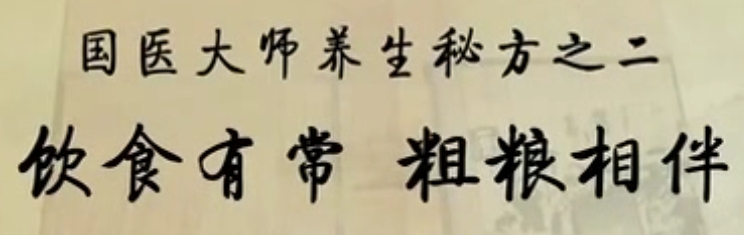 国医大师养生秘方之二
饮食有常 粗粮相伴